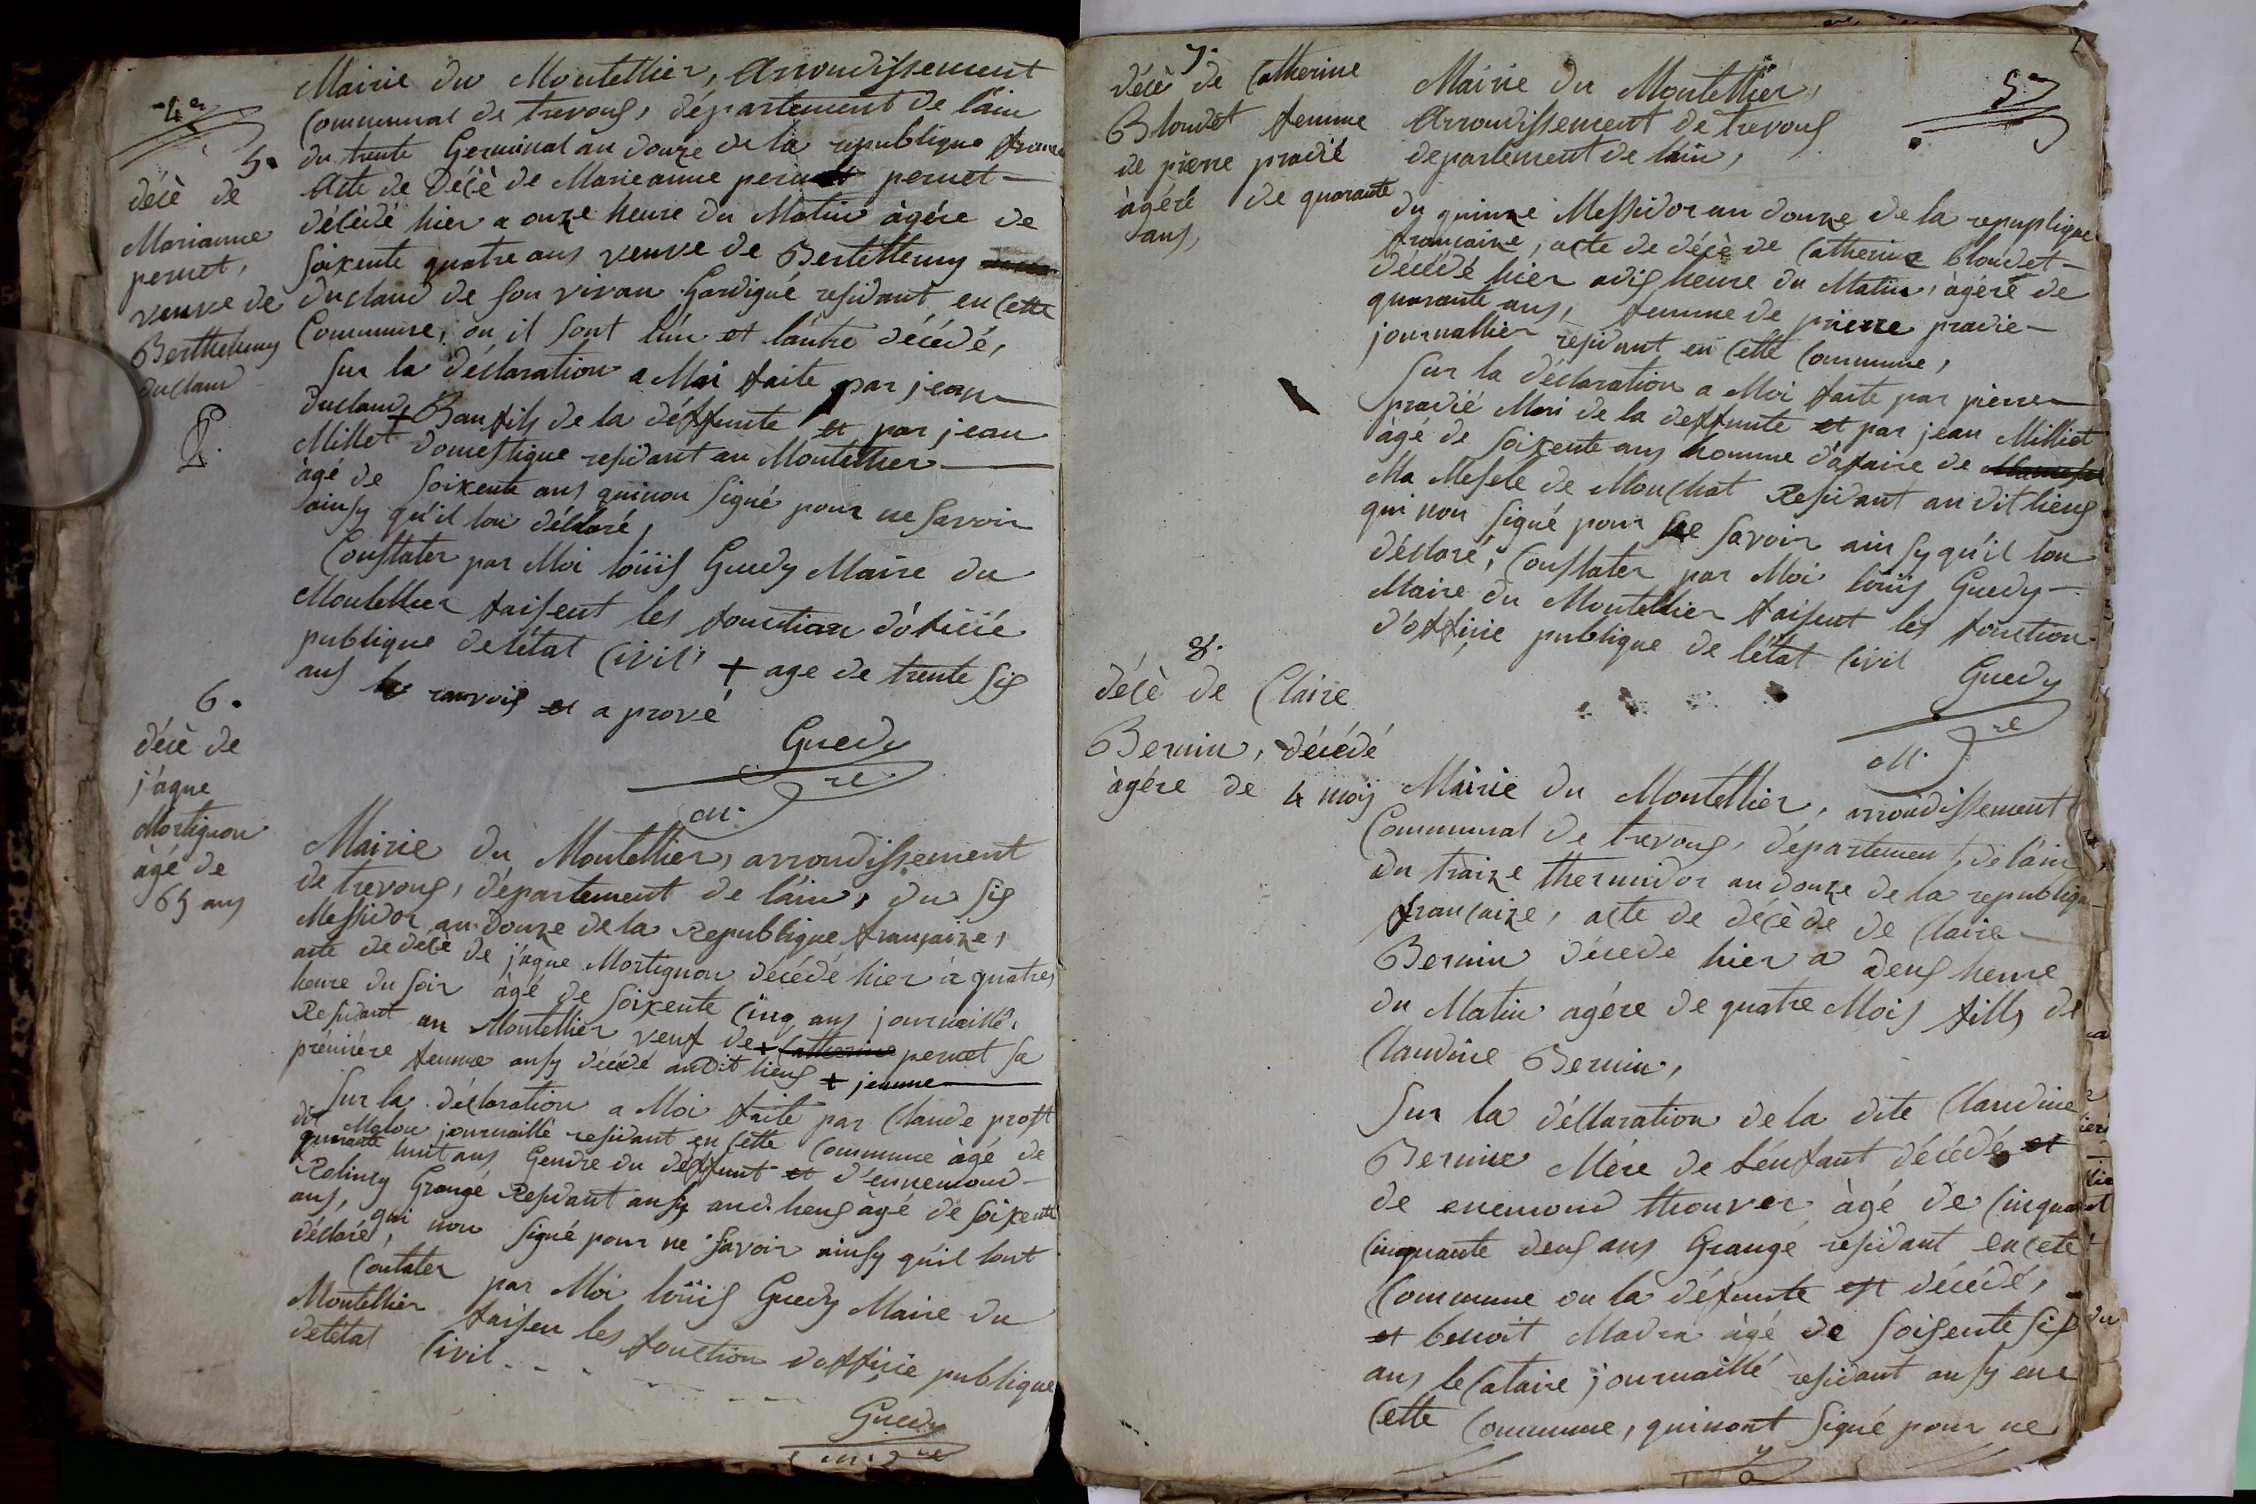 4e
5.
décè de
Marianne
pernet,
veuve de
Berthelemy
duclaud
Mairie du Montellier, Arrondissement
Communal de trevous, département de l'ain
du trente Germinal an douze de la republique franc
Acte de Décè de Marieanne pernet
décédé hier a onze heure du Matin àgére de
soixente quatre ans veuve de Bertellemy
duclaud de son vivan Gardigué residant en Cette
Commune, ou il sont l'un et l'autre décédé,
sur la déclaration a Moi faite par jean
duclaud + Bau fils de la déffunte et par jean
Millet domestique residant au Montellier
àgé de soixente ans qui non signé pour ne savoir
ainsy qu'il lon déclaré,
Constater par Moi loüis Guedy Maire du
Montellier faisent les fonction d'oficié
publique de l'état Civil + age de trente sis
ans le ranvois et a prové
Guedy
m. re
6.
décè de
j'aque
Mortignon
àgé de
65 ans
Mairie du Montellier, arrondissement
de trevous, département de l'ain, du sis
Messidor an douze de la Republique françaize,
acte de décè de j'aque Mortignon décédé hier à quatres
heure du soir àgé de soixente Cinq ans journaillé,
Residant au Montellier veuf de + Catherine pernet sa
prémiére femme ausy décédé au Dit lieus + jeanne
Sur la déclaration a Moi faite par Claude prost
dit Malou journaillé residant en Cette Commune àgé de
quarante huit ans Gendre du déffunt et d'ennemond
Grangé Residant ausy aud. lieus àgé de soixente
ans, qui non signé pour ne savoir ainsy qu'il lont
déclaré,
Contater par Moi loüis Guedy Maire du
Montellier faisen les fonction d'officie publique
de l'état Civil
Guedy
m. re
7.
décè de Catherine
Bloudet femme
de pierre pradié
àgére de quarante
ans,
5e
Mairie du Montellier,
Arrondissement de trevous
département de l'ain,
du quinze Messidor an douze de la repuplique
françaize, acte de décè de Catherine bloudet
décédé hier a dis heure du Matin, àgéré de
quarante ans, femme de pierre pradie
journallier residant en Cette Commune,
Sur la déclaration a Moi faite par pierre
pradié Mari de la deffunte et par jean Milliet
àgé de soixente ans homme d'afaire de
Ma Mesele de Monchat Residant au dit lieus
qui non signé pour ne savoir ainsy qu'il lon
déclaré, Constater par Moi loüis Guedy
Maire du Montellier faisent les fonction
d'officie publique de l'état Civil
Guedy
m. re
8.
décè de Claire
Bernin, décédé
àgére de 4 mois
Mairie du Montellier, arrondissement
Communal de trevous, département de l'ain,
du traize thermidor an douze de la republique
françaize, acte de décè de de Claire
Bernin décede hier a deus heure
du Matin agére de quatre Mois fills de
Claudine Bernin,
Sur la déclaration de la dite Claudine
Bernine Mére de l'énfant décédé et
de enemond thouver àgé de Cinqua
Cinquante deus ans Grangé residant en Cete
Commune ou la défunte est décédé,
et benoit Madra àgé de soisente sis
ans leCataire journaillé residant ausy en
Cette Commune, qui nont signé pour ne